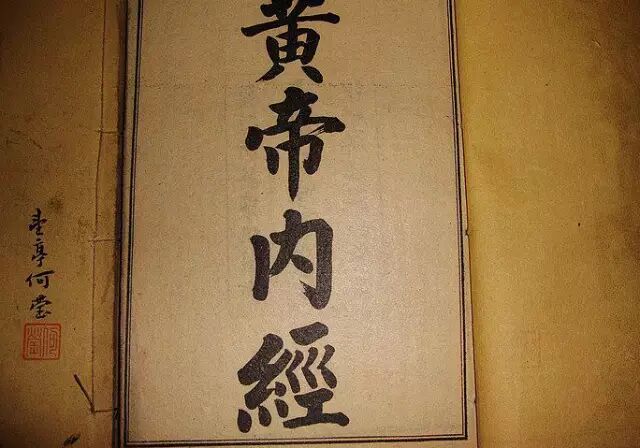 黃帝內經
亭何莹